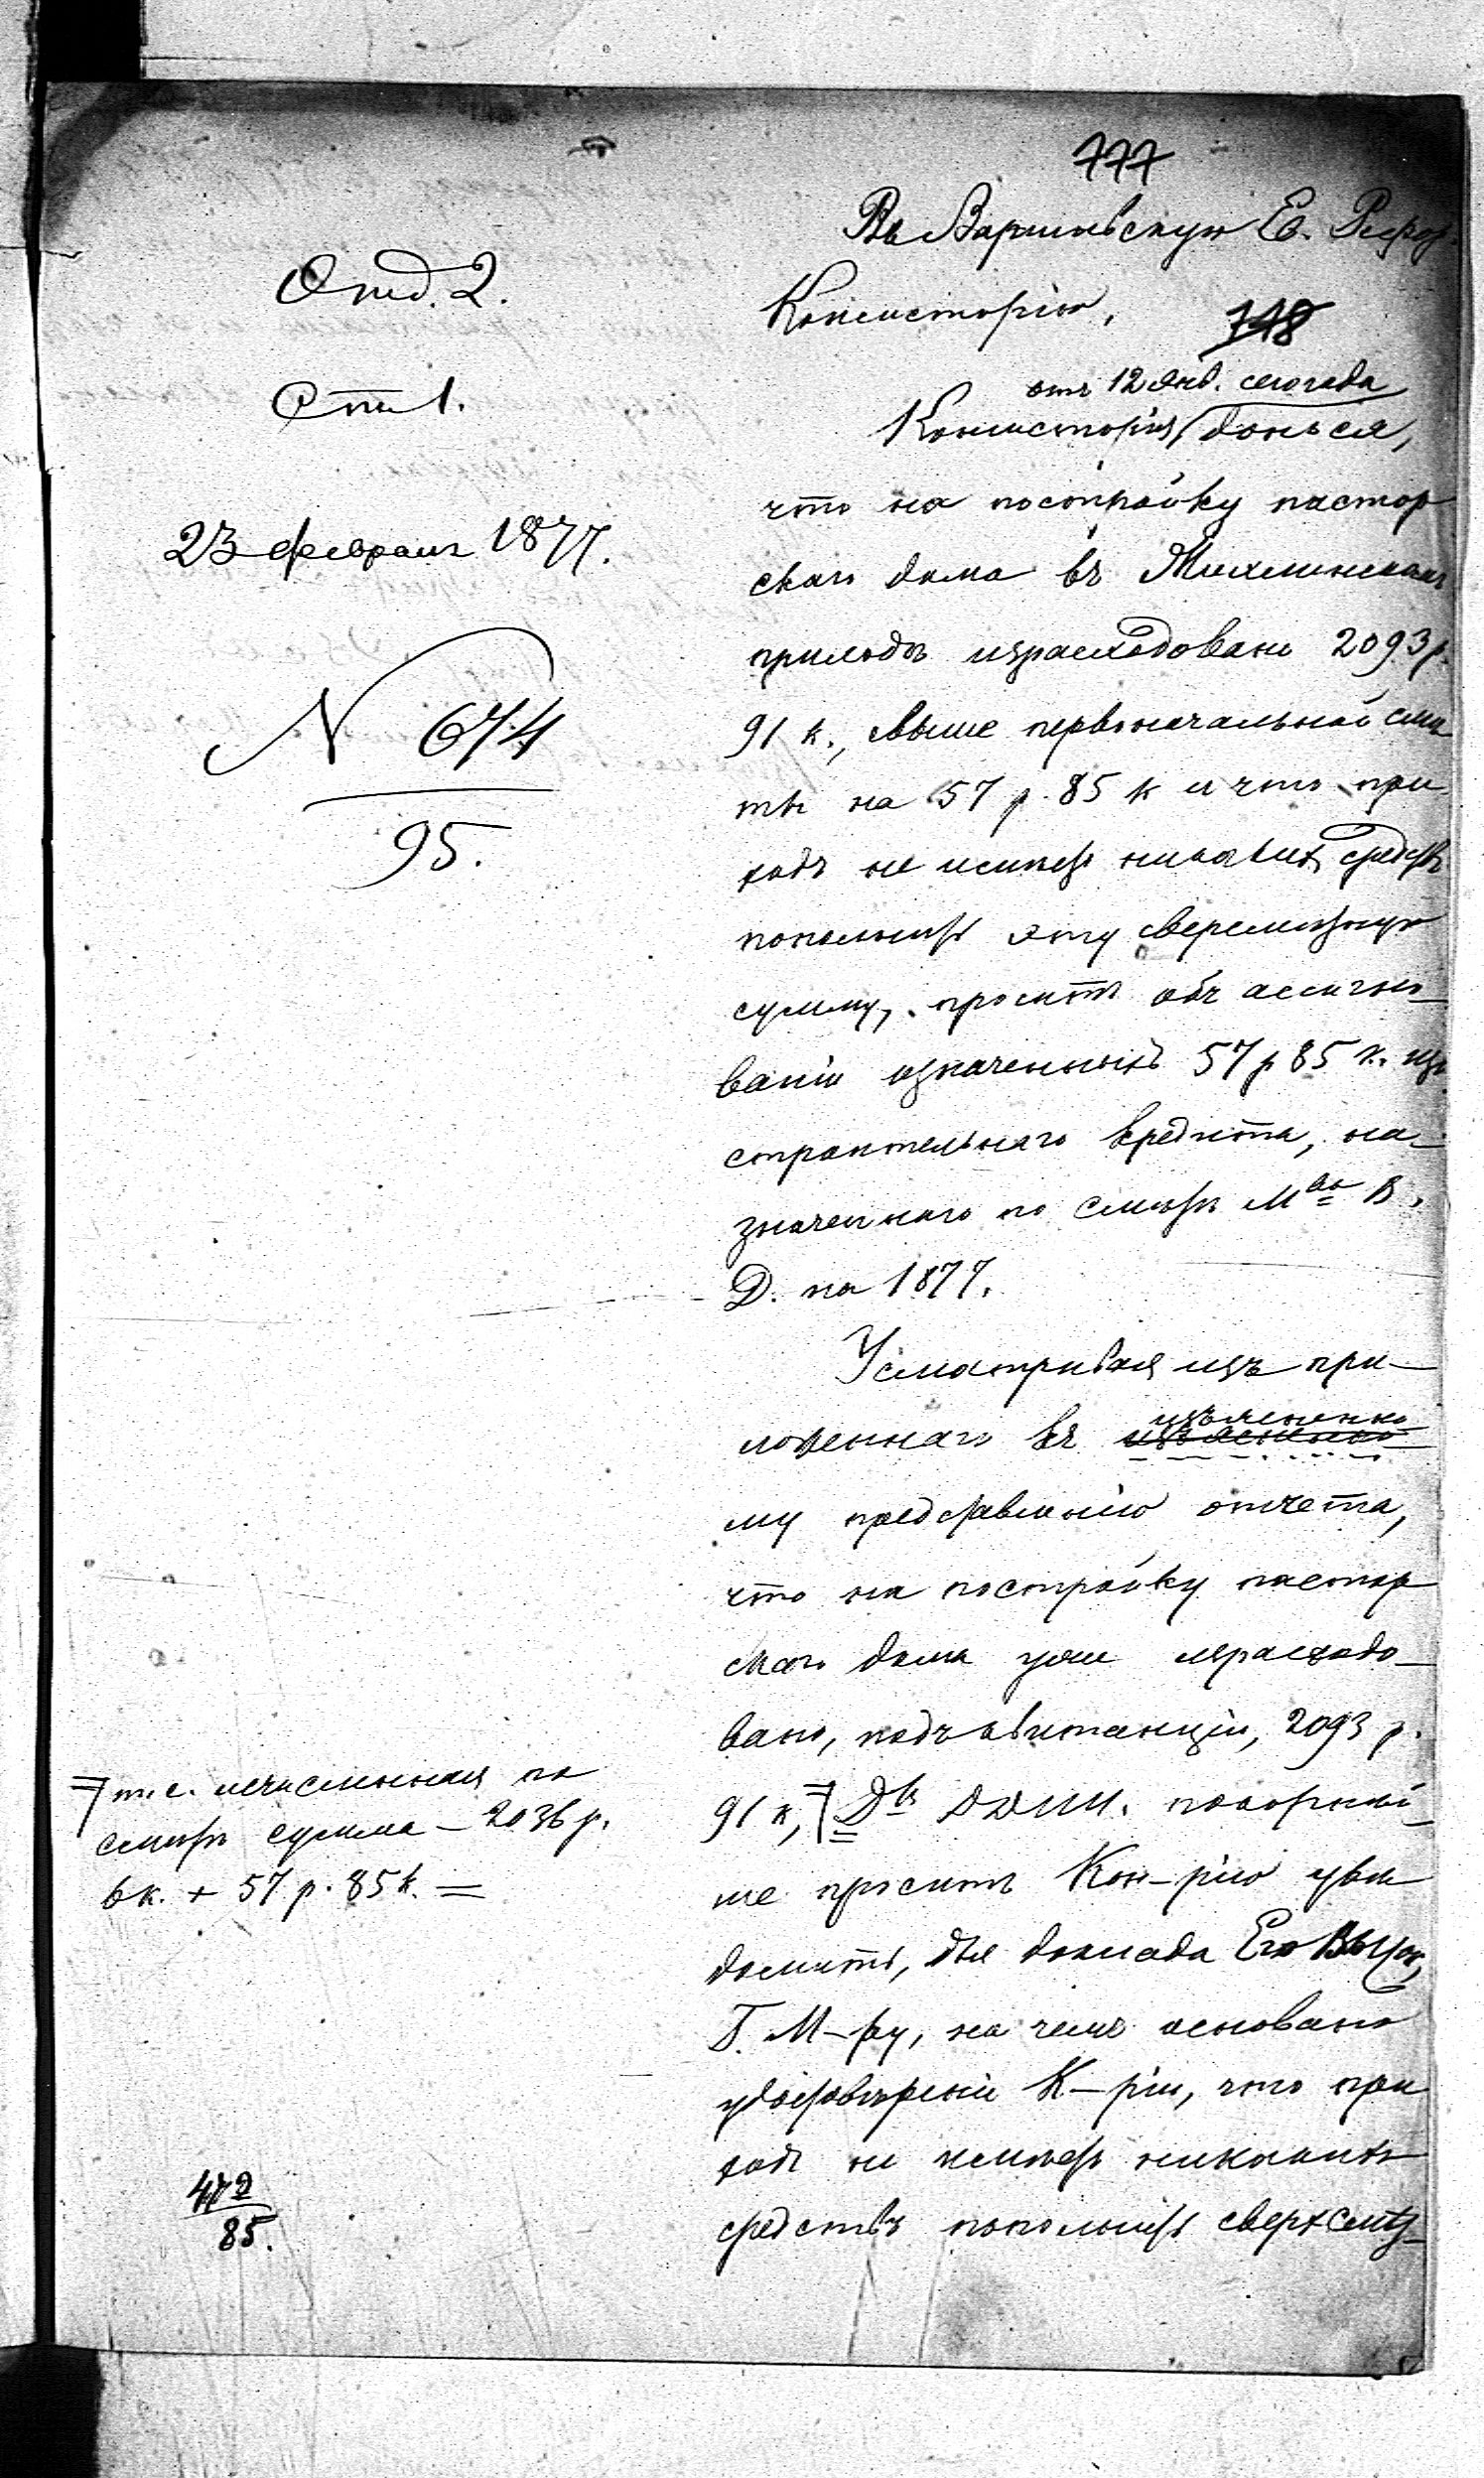 777
Въ Варшавскую Ев. Рефор.
Консисторію.
718
Отд. 2.
Ст. 1.
23 февраля 1877.
N 674
95.
отъ 12 Янв. сего года
Консисторія донеся,
что на постройку пастор
скаго дома въ
приходѣ израсходовано 2093 р.
91 к., свыше первоначальной смѣ
ты на 57 р. 85 к и что при
ходъ не имѣетъ никакихъ средствъ
пополнить эту сверхсмѣтную
сумму, проситъ объ ассигно
ваніи означенныхъ 57 р 85 к. изъ
строительнаго кредита, на
значеннаго по смѣтѣ Мва В.
Д. на 1877.
Усматривая изъ при
ложеннаго къ изъясненно
изъясненно
му представленію отчета,
что на постройку пастор
скаго дома уже израсходо
вано, подъ квитанціи, 2093 р.
91 к, Дъ ДДИИ. покорнѣй
ше проситъ Кон-рію увѣ
домить, для доклада Его Высок,
Г. М-ру, на чемъ основано
удостовѣреніе К-ріи, что при
ходъ не имѣетъ никакихъ
средствъ пополнить сверхсмѣт
т. е. исчисленная по
смѣтѣ сумма – 2036 р.
6 к. + 57 р. 85 к. =
472
85.